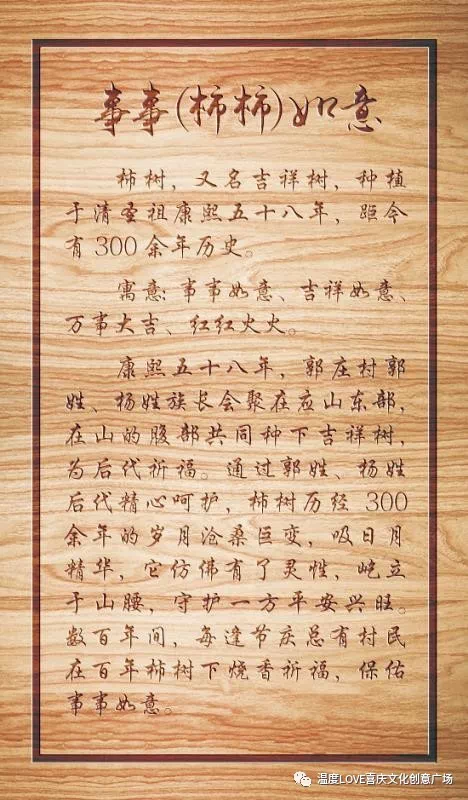 事事(柿柿)如意
柿树，又名吉祥树，种植
于清圣祖康熙五十八年，距今
有300余年历史。
寓意：事事如意、吉祥如意、
万事大吉、红红火火。
康熙五十八年，郭庄村郭
姓、杨姓族长会聚在应山东部，
在山的腹部共同种下吉祥树，
为后代祈福。通过郭姓、杨姓
后代精心呵护，柿树历经300
余年的岁月沧桑巨变，吸日月
精华，它仿佛有了灵性，屹立
于山腰，守护一方平安兴旺。
数百年间，每逢节庆总有村民
在百年柿树下烧香祈福，保佑
事事如意。
温度LOVE喜庆文化创意广场